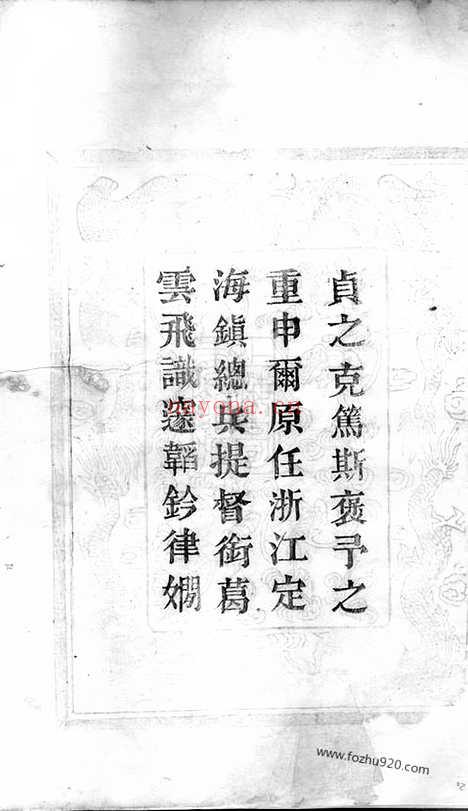 貞之克篤斯褒予之
重申爾原任浙江定
海鎮總兵提督銜葛
雲飛識邃韜鈐律嫺
nayona.cn
www.fozhu920.com